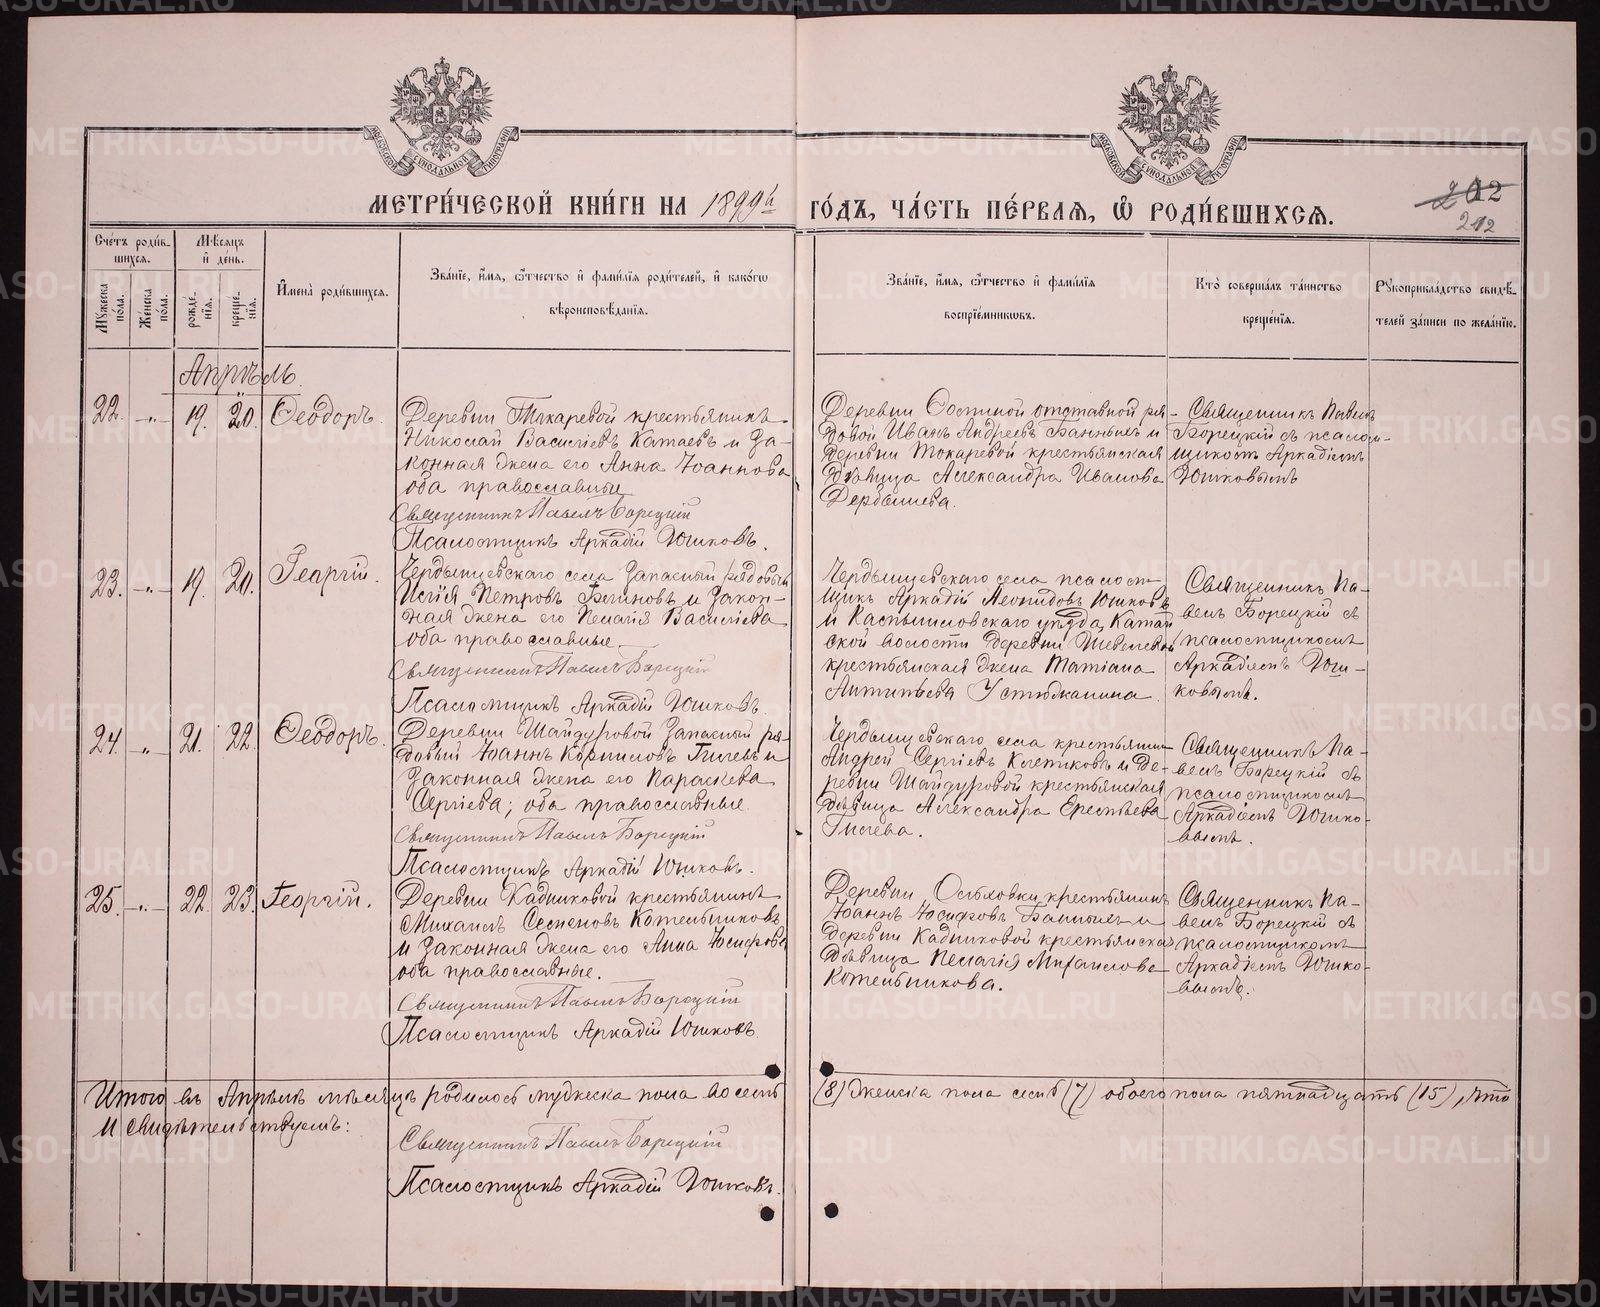 МЕТРИЧЕСКОЙ КНИГИ НА 1899й ГОДЪ, ЧАСТЬ ПЕРВАЯ, Ѿ РОДИВШИХСЯ.
202
212
Счетъ родившихся.
Мѣсяцъ и день.
Мужеска пола.
Женска пола.
рожденія.
крещенія.
Имена родившихся.
Званіе, имя, ѿчество и фамилія родителей, и какогѡ
вѣроисповѣданія.
Званіе, имя, ѿчество и фамилія
воспріемниковъ.
Кто совершалъ таинство
крещенія.
Рукоприкладство свидѣтелей записи по желанію.
Апрѣль
22. -„- 19. 20. Ѳеодоръ.
Деревни Токаревой крестьянинъ
Николай Васильевъ Катаевъ и за-
конная жена его Анна Іоаннова
оба православные
Священникъ Павелъ Борецкій
Псаломщикъ Аркадій Юшковъ.
Деревни Осиной отставной ря-
довой Иванъ Андреевъ Банныхъ и
деревни Токаревой крестьянская
дѣвица Александра Иванова
Дербышева.
Священникъ Павелъ
Борецкій съ псалом-
щикомъ Аркадіемъ
Юшковымъ
23. -„- 19. 20. Георгій.
Чердынцевскаго села запасный рядовый
Илія Петровъ и закон-
ная жена его Пелагія Васильева
оба православные
Священникъ Павелъ Борецкій
Псаломщикъ Аркадій Юшковъ.
Чердынцевскаго села псалом-
щикъ Аркадій Леонидовъ Юшковъ
и Камышловскаго уѣзда, Катай
ской волости деревни
крестьянская жена Татіана
Антипьева Устюжанина
Священникъ Па-
велъ Борецкій съ
псаломщикомъ
Аркадіемъ Юш-
ковымъ.
24. -„- 21. 22. Ѳеодоръ.
Деревни Шайдуровой запасный ря-
довый Іоаннъ Корниловъ Гилевъ и
законная жена его Параскева
Сергіева; оба православные
Священникъ Павелъ Борецкій
Псаломщикъ Аркадій Юшковъ.
Чердынцевскаго села крестьянинъ
Андрей Сергіевъ Клепиковъ и де-
ревни Шайдуровой крестьянская
дѣвица Александра
Гилева.
Священникъ Па-
велъ Борецкій съ
псаломщикомъ
Аркадіемъ Юшко-
вымъ.
25. -„- 22. 23. Георгій.
Деревни Кадниковой крестьянинъ
Михаилъ Семеновъ Котельниковъ
и законная жена его Анна Іосифова
оба православные.
Священникъ Павелъ Борецкій
Псаломщикъ Аркадій Юшковъ.
Деревни крестьянинъ
Іоаннъ Іосифовъ Банныхъ и
деревни Кадниковой крестьянская
дѣвица Пелагія Михаилова
Котельникова.
Священникъ Па-
велъ Борецкій съ
псаломщикомъ
Аркадіемъ Юшко-
вымъ.
Итого въ Апрѣлѣ мѣсяцѣ родилось мужеска пола восемь (8) женска пола семь (7) обоего пола пятнадцать (15), что
и свидѣтельствуемъ:
Священникъ Павелъ Борецкій
Псаломщикъ Аркадій Юшковъ.
METRIKI.GASO-URAL.RU